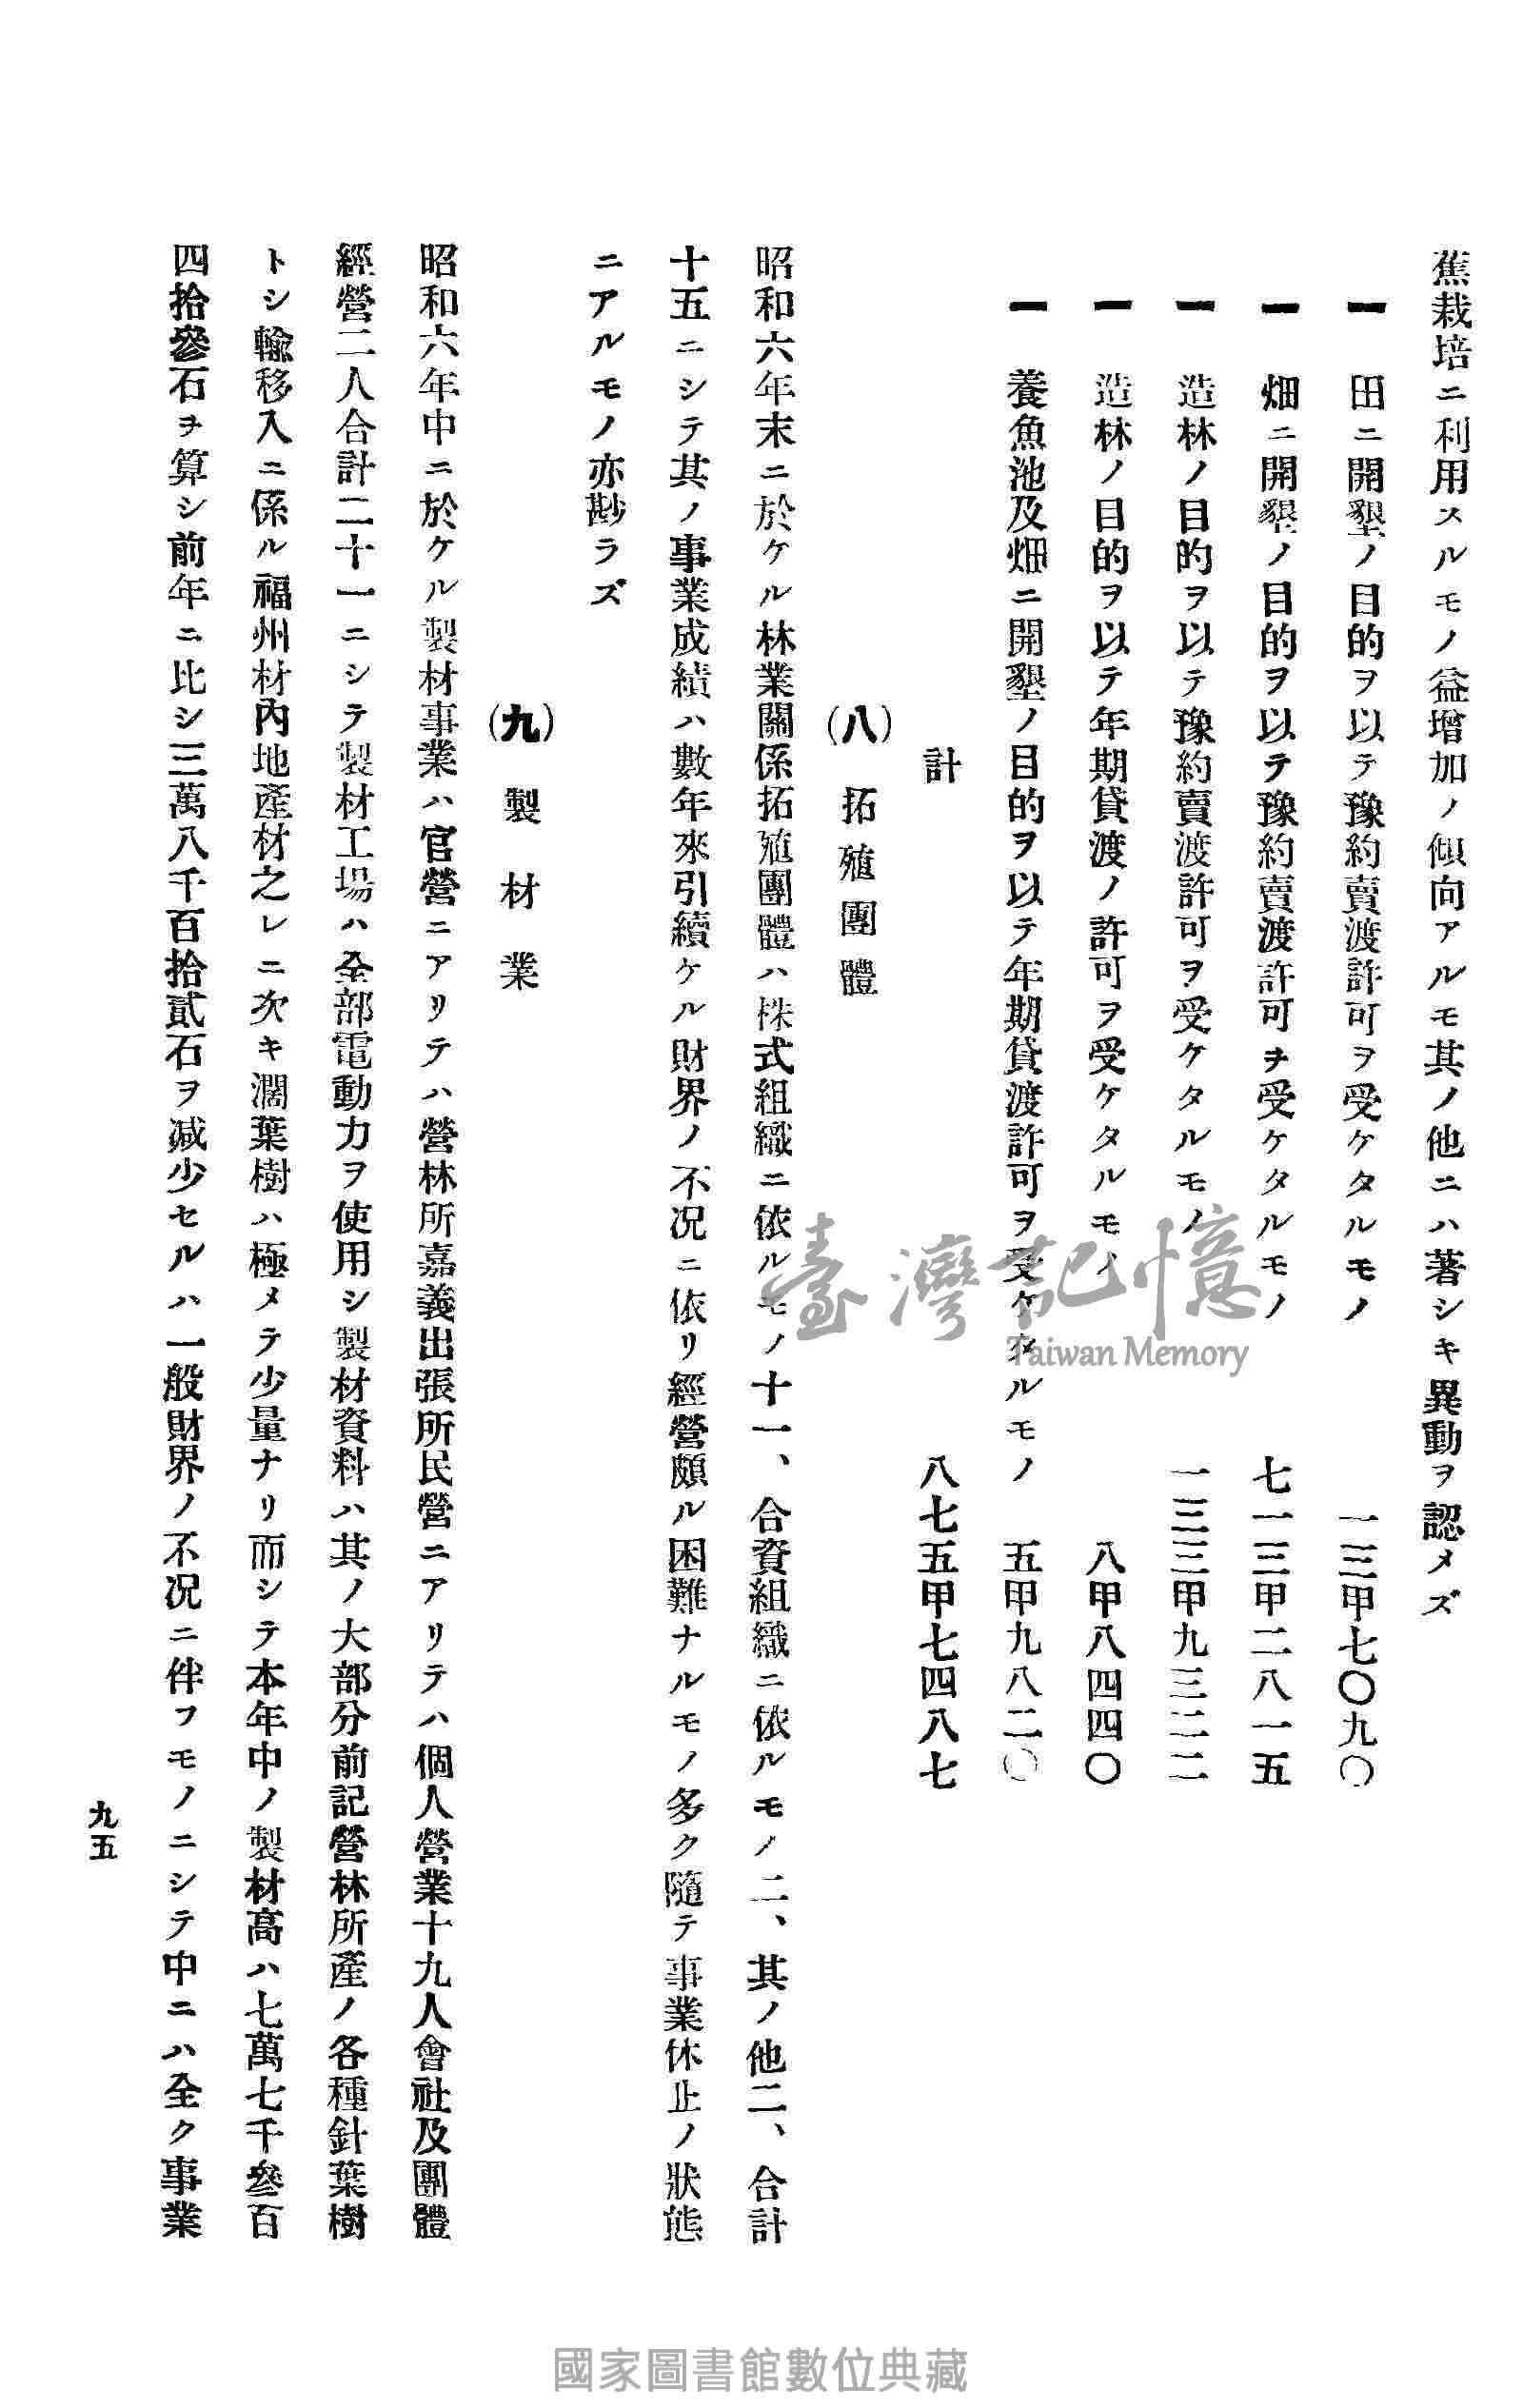 蕉栽培ニ利用スルモノ益增加ノ傾向アルモ其ノ他ニハ著シキ異動ヲ認メズ
一 田ニ開墾ノ目的ヲ以テ豫約賣渡許可ヲ受ケタルモノ 一三甲七〇九〇
一 畑ニ開墾ノ目的ヲ以テ豫約賣渡許可ヲ受ケタルモノ 七一三甲二八一五
一 造林ノ目的ヲ以テ豫約賣渡許可ヲ受ケタルモノ 一三三甲九三二二
一 造林ノ目的ヲ以テ年期貸渡ノ許可ヲ受ケタルモノ 八甲八四四〇
一 養魚池及畑ニ開墾ノ目的ヲ以テ年期貸渡許可ヲ受ケタルモノ 五甲九八二〇
計 八七五甲七四八七
(八) 拓殖團體
昭和六年末ニ於ケル林業關係拓殖團體ハ株式組織ニ依ルモノ十一、合資組織ニ依ルモノ二、其ノ他二、合計
十五ニシテ其ノ事業成績ハ數年來引續ケル財界ノ不況ニ依リ經營頗ル困難ナルモノ多ク隨テ事業休止ノ狀態
ニアルモノ亦尠ラズ
(九) 製材業
昭和六年中ニ於ケル製材事業ハ官營ニアリテハ營林所嘉義出張所民營ニアリテハ個人營業十九人會社及團體
經營二人合計二十一ニシテ製材工場ハ全部電動力ヲ使用シ製材資料ハ其ノ大部分前記營林所產ノ各種針葉樹
トシ輸移入ニ係ル福州材內地產材之レニ次キ濶葉樹ハ極メテ少量ナリ而シテ本年中ノ製材高ハ七萬七千參百
四拾參石ヲ算シ前年ニ比シ三萬八千百拾貳石ヲ減少セルハ一般財界ノ不況ニ伴フモノニシテ中ニハ全ク事業
九五
臺灣記憶
Taiwan Memory
國家圖書館數位典藏